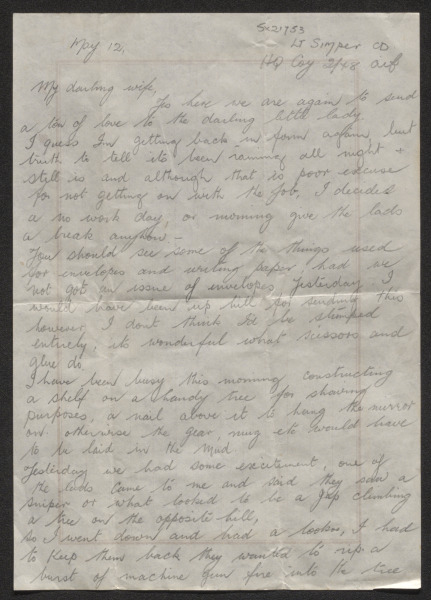 SX21753
May 12, Lt Simper CD
HQ Coy 2/48 aif
My darling wife,
Yes here we are again to send
a ton of love to the darling little lady
I guess Im getting back in form again, but
truth to tell its been raining all night +
still is and although that is poor excuse
for not getting on with the Job, I decided
a no work day, or morning give the lads
a break anyhow –
You should see some of the things used
for envelopes and writing paper, had we
not got an issue of envelopes yesterday I
would have been up hill for sending this
however I dont think Id be stumped
entirely, its wonderful what scissors and
glue do.
I have been busy this morning constructing
a shelf on a handy tree for shaving
purposes, a nail above it to hang the mirror
on otherwise the gear, mug etc would have
to be laid in the mud
Yesterday we had some excitement one of
the lads came to me and said they saw a
sniper or what looked to be a Jap climbing
a tree on the opposite hill,
so I went down and had a lookin, I had
to keep them back they wanted to rip a
burst of machine gun fire into the tree